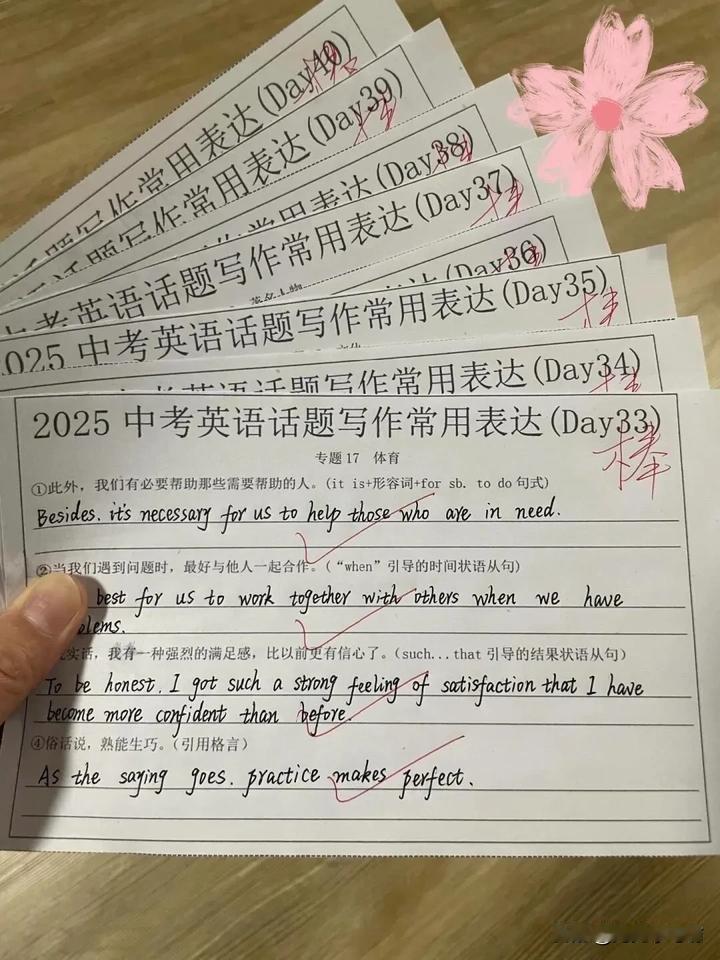 (Day40)
话题写作常用表达(Day39)
话题写作常用表达(Day38)
中考英语话题写作常用表达(Day37)
英语话题写作常用表达(Day36)
2025 中考英语话题写作常用表达(Day35)
中考英语话题写作常用表达(Day34)
2025 中考英语话题写作常用表达(Day33)
棒
专题17 体育
①此外，我们有必要帮助那些需要帮助的人。(it is+形容词+for sb. to do 句式)
Besides, it's necessary for us to help those who are in need.
②当我们遇到问题时，最好与他人一起合作。(“when”引导的时间状语从句)
best for us to work together with others when we have
blems.
实话，我有一种强烈的满足感，比以前更有信心了。(such...that 引导的结果状语从句)
To be honest, I got such a strong feeling of satisfaction that I have
become more confident than before.
④俗话说，熟能生巧。(引用格言)
As the saying goes, practice makes perfect.